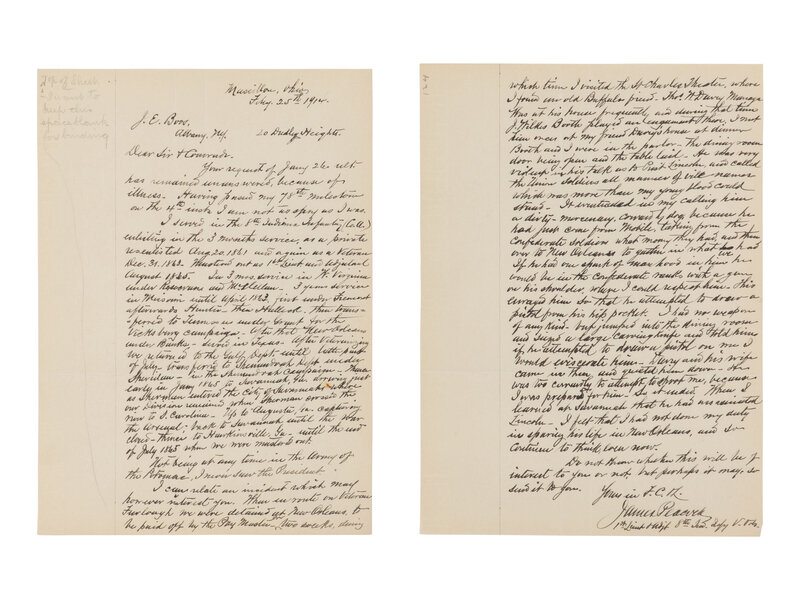 2 pp of Sheet
I want to
keep this
space blank
for binding
Massillon, Ohio,
Feby. 25th 1914.
J. E. Boos,
Albany, NY. 20 Dudley Heights
Dear Sir & Comrade.
Your request of Jany 26 ult
has remained unanswered, because of
illness. Having passed my 78th milestone
on the 4th inst. I am not as spry as I was.
I served in the 8th Indiana Infantry (Vol.)
enlisting in the 3 months service, as a private
reenlisted Aug. 20, 1861 and again as a Veteran
Dec. 31, 1863. Mustered out as 1st Lieut and Adjutant
August 1865. In 3 mos. service in W. Virginia
under Rosecrans and McClellan. I years service
in Missouri until April 1863, first under Fremont
afterwards Hunter - then Halleck. Then trans-
-ferred to under Grant for the
Vicksburg campaign - After that New Orleans
under Banks - served in Texas - After Veteranizing
we returned to the Gulf Dept. until latter part
of July - transferred to Shenandoah Dept under
Sheridan - in the Shenandoah Campaign - thence
early in Jany 1865 to Savannah, Ga. arriving just
as Sherman entered the City of Savannah, where
our Division remained when Sherman crossed the
river to S. Carolina - Up to Augusta, Ga. capturing
the Arsenal - back to Savannah until the War
closed - thence to Hawkinsville, Ga - until the end
of July 1865 when we were mustered out.
Not being at any time in the Army of
the Potomac, I never saw the President.
I can relate an incident which may
however interest you. When en route on Veteran
Furlough we were detained at New Orleans, to
be paid off by the Pay Master, two weeks, during
which time I visited the St Charles Theater, where
I found an old Buffalo friend - Thos. W. Davey, Manager
Was at his house frequently, and during that time
J. Wilkes Booth played an engagement there, I met
him once at my friend Davey's house at dinner
Booth and I were in the parlor - the dining room
door being open and the table laid. He was very
violent in his talk as to Presdt Lincoln, and called
the Union Soldiers all manner of vile names
which was more than my young blood could
stand - It eventuated in my calling him
a dirty, mercenary, cowardly dog, because he
had just come from Mobile, taking from the
Confederate Soldiers what money they had, and then
over to New Orleans to gather in what we had
If he had one spark of manhood in him he
would be in the Confederate ranks with a gun
on his shoulder, where I could respect him. This
enraged him so that he attempted to draw a
pistol from his hip pocket. I had no weapon
of any kind - but jumped into the dining room
and seized a large carving knife and told him
if he attempted to draw a pistol on me I
would eviscerate him. Davey and his wife
came in then, and quieted him down. He
was too cowardly to attempt to shoot me, because
I was prepared for him - So it ended. When I
learned at Savannah that he had assassinated
Lincoln - I felt that I had not done my duty
in sparing his life in New Orleans, and so
continue to think even now.
Do not know whether this will be of
interest to you or not, but perhaps it may, so
send it to you.
Yours in F. C. & L.
James Peacock
1st Lieut & Adjt. 8th Ind. Infy V. Vols.